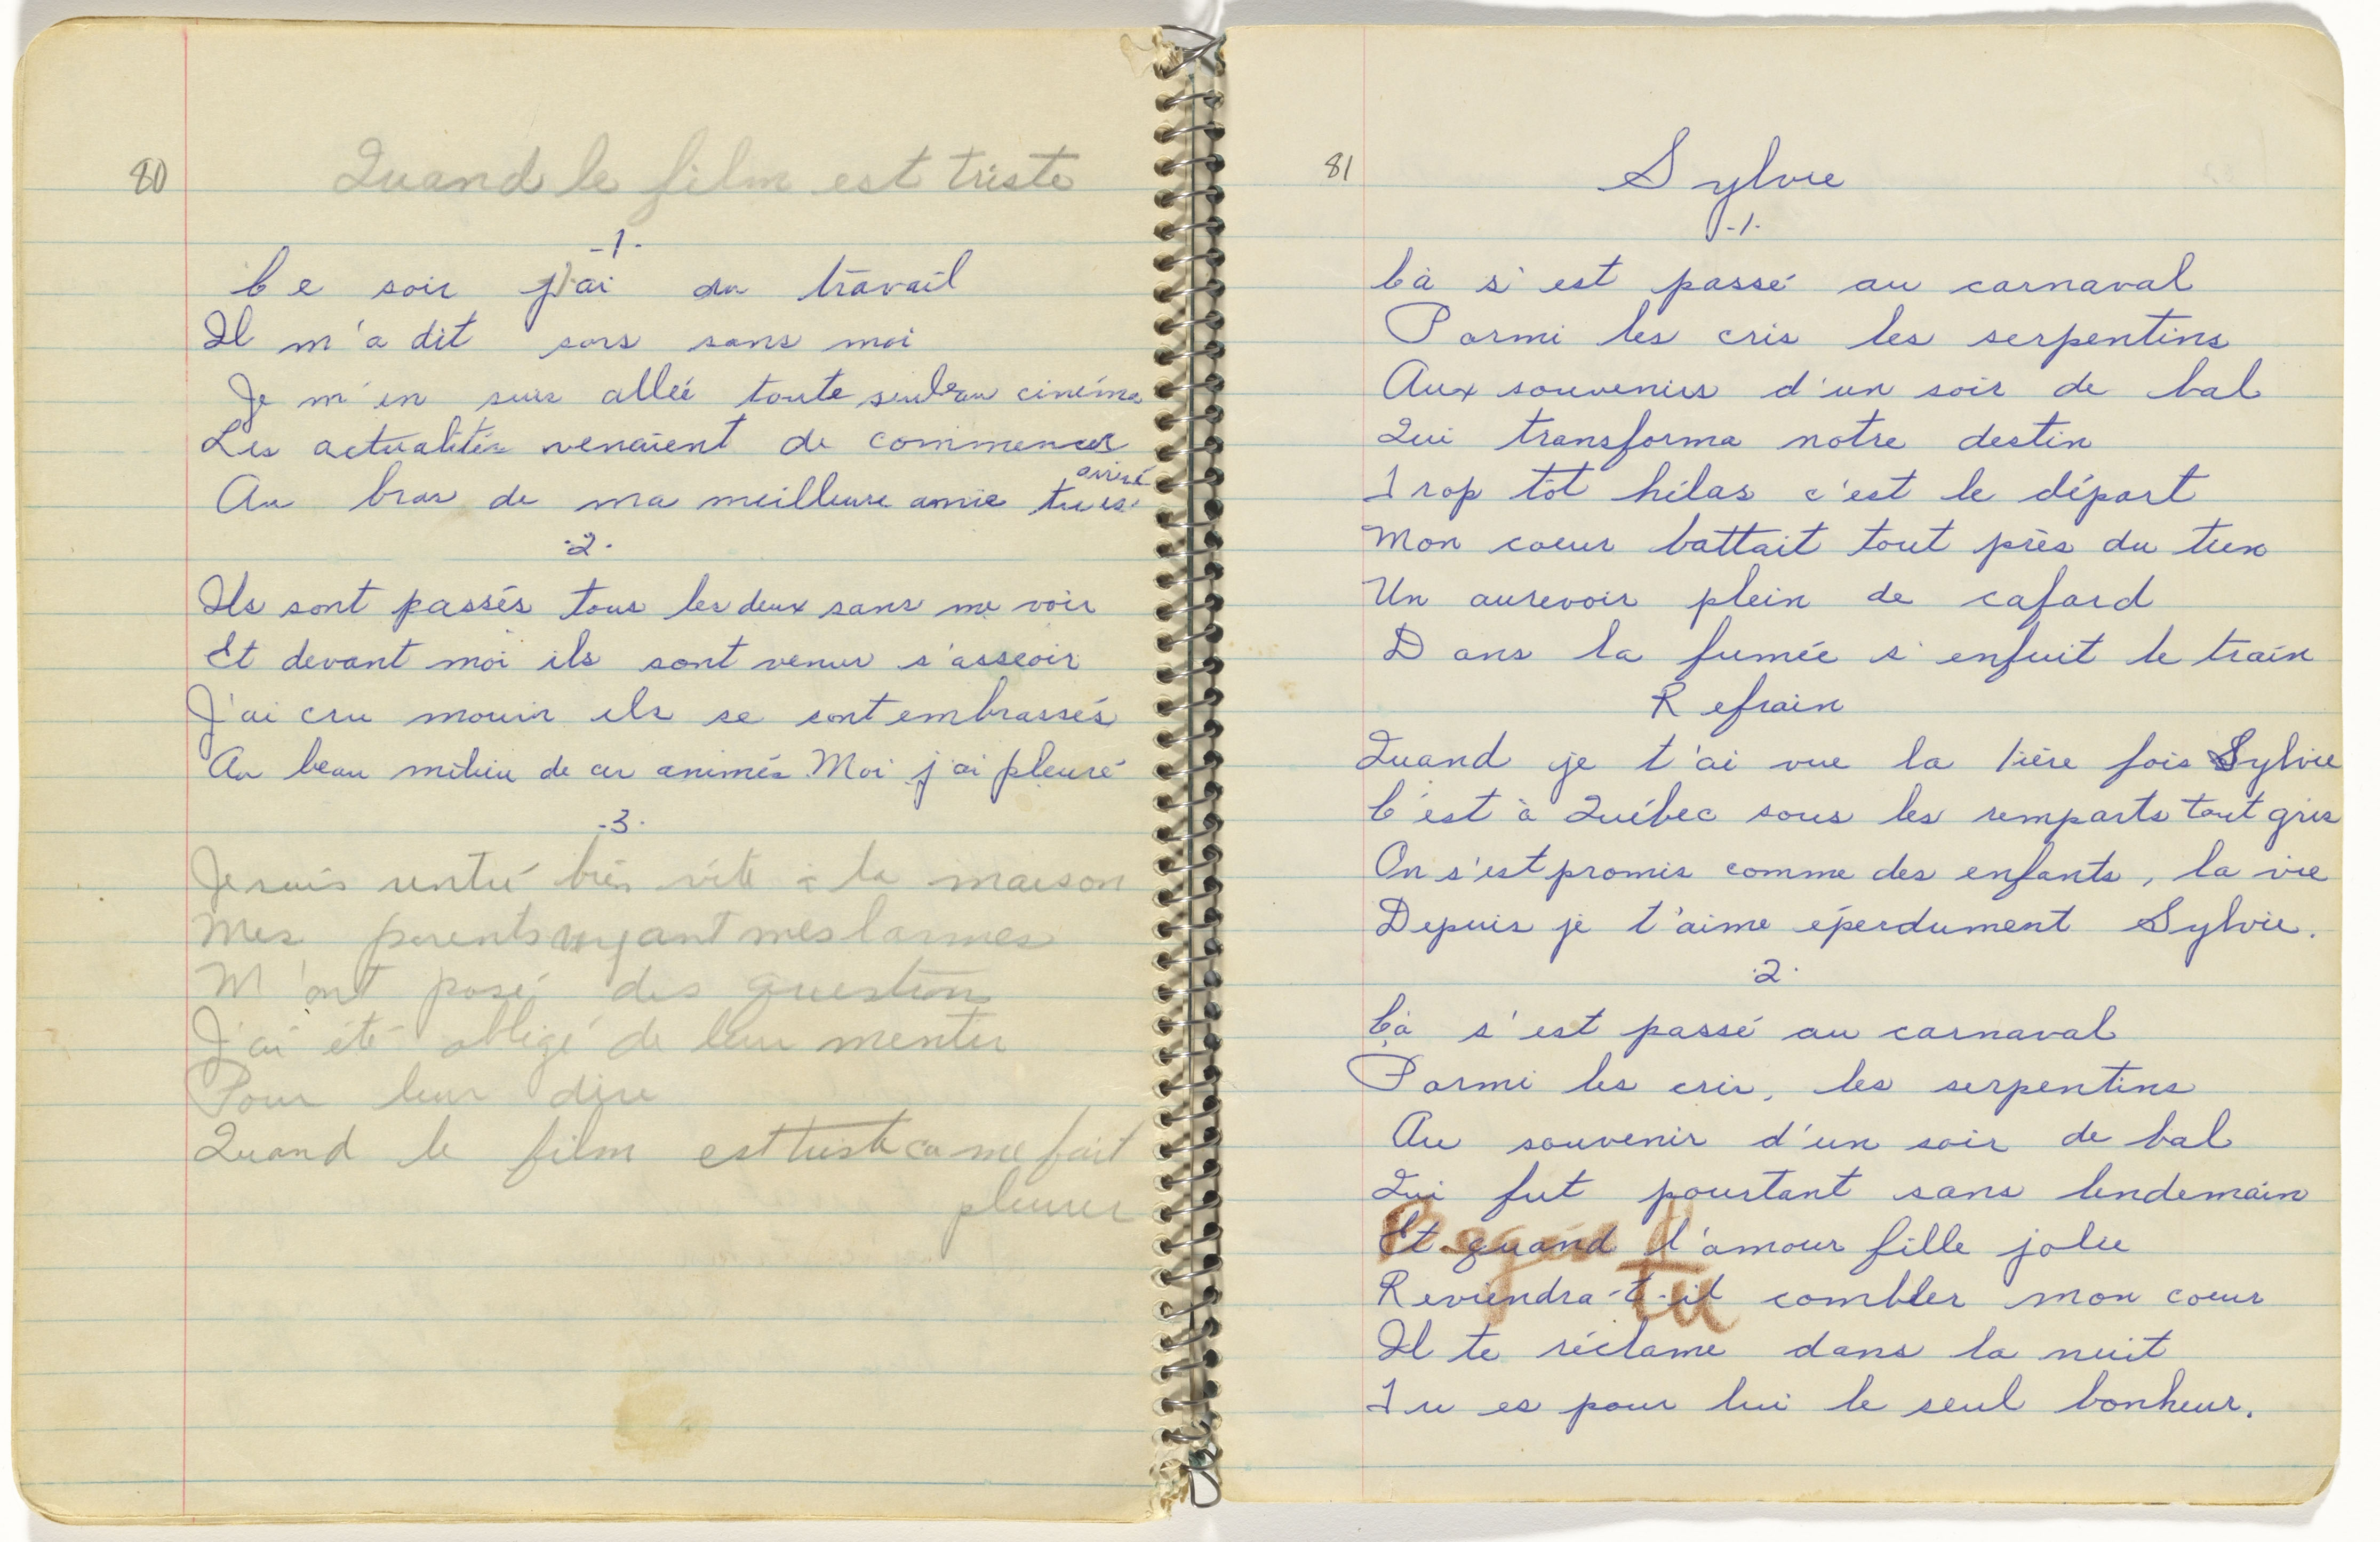 80
Quand le film est triste
-1-
Ce soir j'ai du travail
Il m'a dit sors sans moi
Je m'en suis allée toute seule au cinéma
Les actualités venaient de commencer
Au bras de ma meilleure amie tu es arrivé
-2-
Ils sont passés tous les deux sans me voir
Et devant moi ils sont venus s'asseoir
J'ai cru mourir ils se sont embrassés
Au beau milieu de ces animés Moi j'ai pleuré
-3-
Je suis rentré bien vite à la maison
Mes parents voyant mes larmes
M'ont posé des question
J'ai été obligé de leur mentir
Pour leur dire
Quand le film est triste ca me fait
pleurer
81
Sylvie
-1-
Cà s'est passé au carnaval
Parmi les cris les serpentins
Aux souvenirs d'un soir de bal
Qui transforma notre destin
Trop tôt hélas c'est le départ
Mon coeur battait tout près du tien
Un aurevoir plein de cafard
Dans la fumée s'enfuit le train
Refrain
Quand je t'ai vue la 1ière fois Sylvie
C'est à Québec sous les remparts tout gris
On s'est promis comme des enfants, la vie
Depuis je t'aime éperdument Sylvie.
-2-
Cà s'est passé au carnaval
Parmi les cris, les serpentins
Au souvenir d'un soir de bal
Qui fut pourtant sans lendemain
Et quand l'amour fille jolie
Reviendra-t-il combler mon coeur
Il te réclame dans la nuit
Tu es pour lui le seul bonheur.